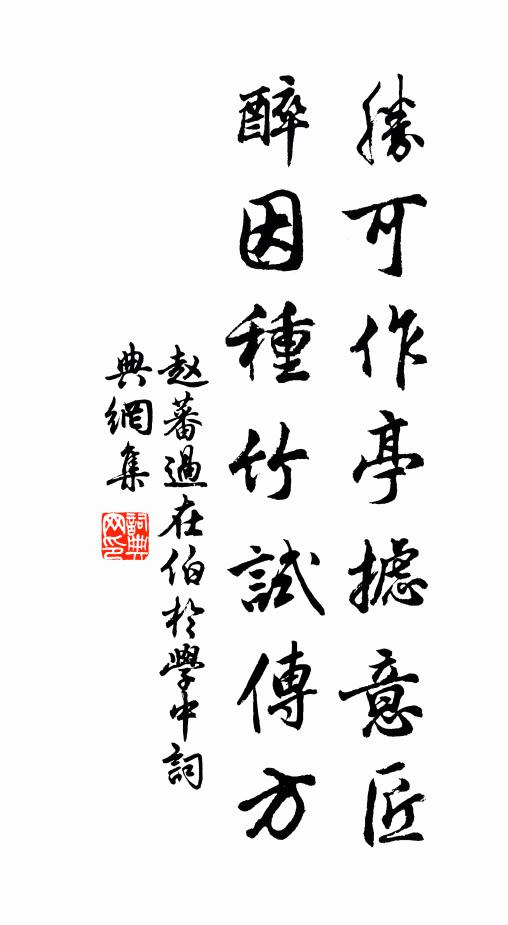 勝可作亭攄意匠
醉因種竹試傳方
赵蕃過在伯於學中詞
典網集
詞典
网印